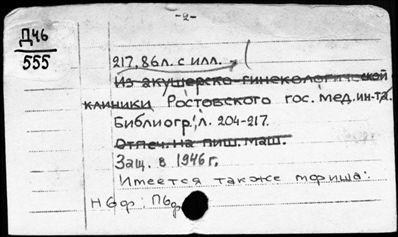 -2-
Д46
555
217, 86 л. с илл.
Из акушерско-гинекологической
клиники Ростовского гос. мед. ин-та.
Библиогр., л. 204-217.
Отпеч. на пиш. маш.
Защ. в 1946 г.
Имеется также мфиша:
Нбф: Пбф